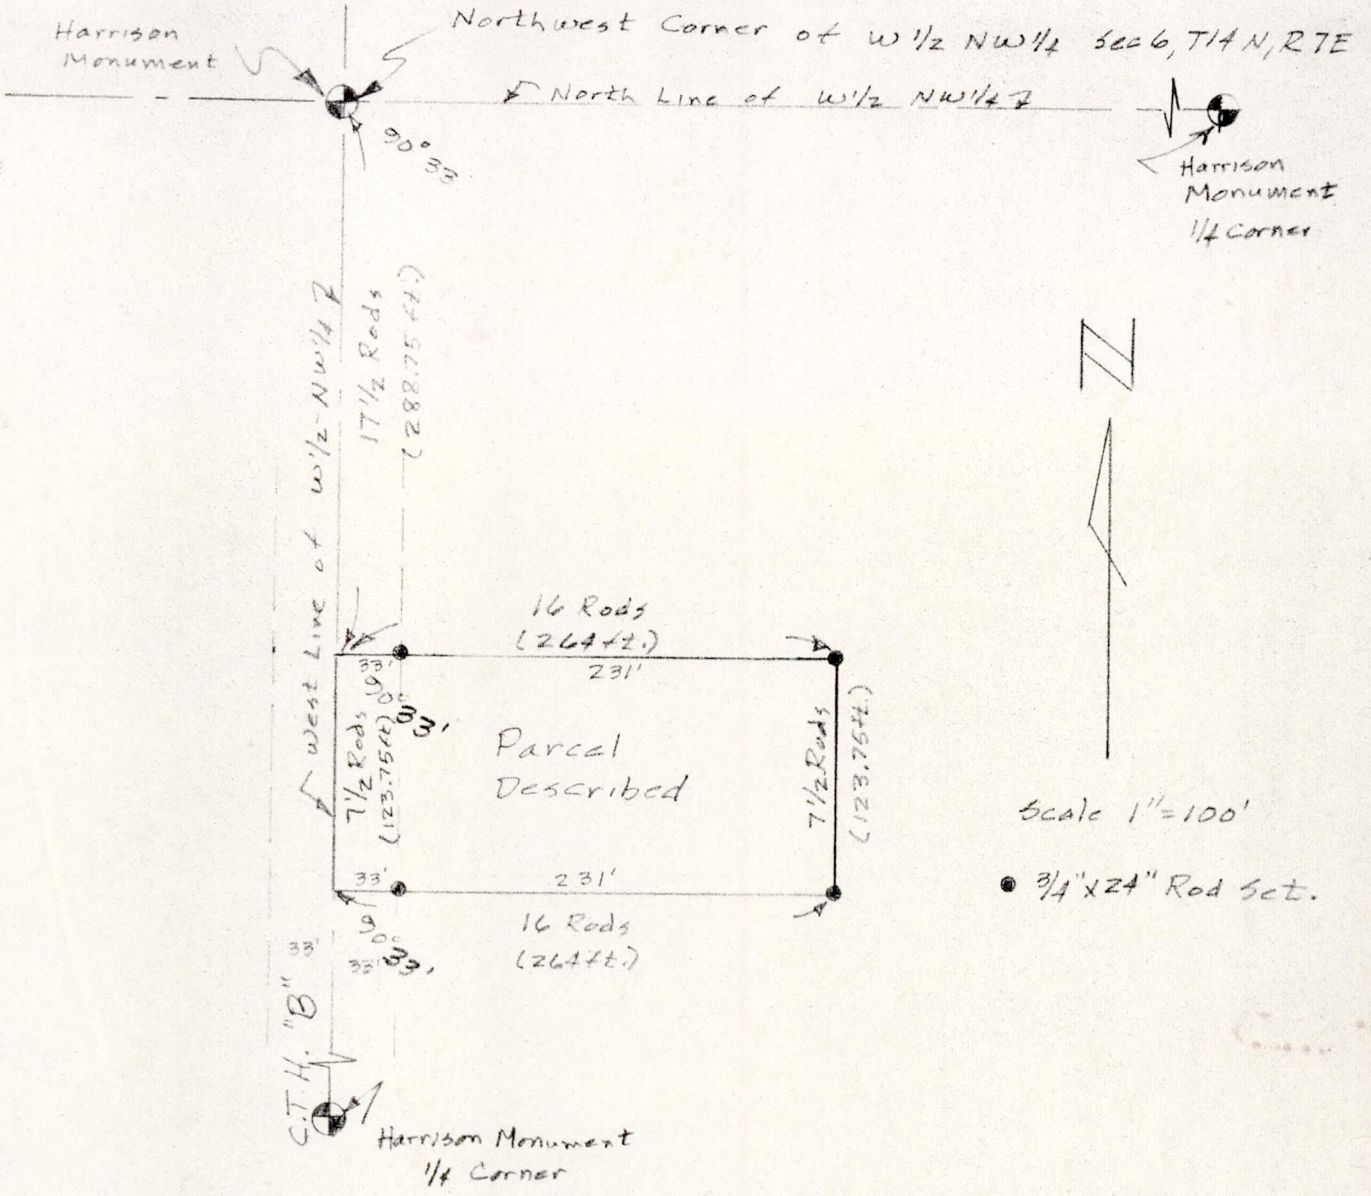 Harrison
Monument
Northwest Corner of W 1/2 NW 1/4 Sec 6, T14N, R7E
North Line of W 1/2 NW 1/4
90° 33
Harrison
Monument
1/4 Corner
West Line of W 1/2 NW 1/4
17 1/2 Rods
(288.75 ft.)
N
16 Rods
(264 ft.)
33'
231'
90° 33'
7 1/2 Rods
(123.75 ft)
Parcel
Described
7 1/2 Rods
(123.75 ft.)
Scale 1"=100'
3/4" x 24" Rod Set.
33'
231'
16 Rods
(264 ft.)
90° 33'
33'
33'
C.T.H. "B"
Harrison Monument
1/4 Corner